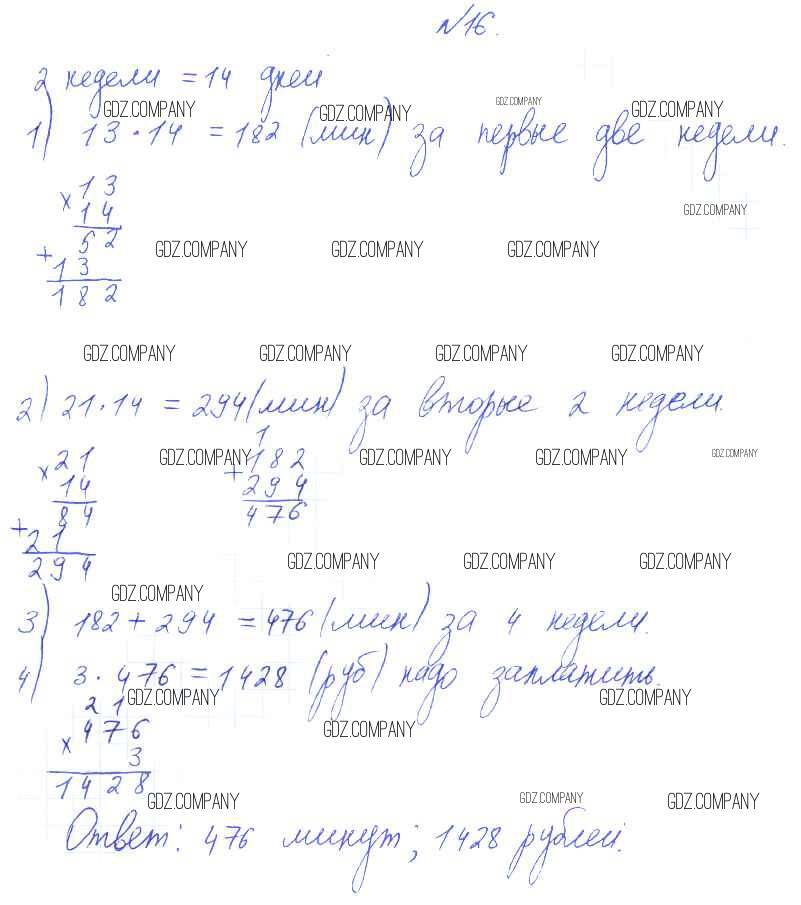 №16.
2 недели = 14 дней
GDZ.COMPANY GDZ.COMPANY GDZ.COMPANY GDZ.COMPANY
1) 13·14 = 182 (мин) за первые две недели.
× 13
14 GDZ.COMPANY
52
+ 13 GDZ.COMPANY GDZ.COMPANY GDZ.COMPANY
182
GDZ.COMPANY GDZ.COMPANY GDZ.COMPANY GDZ.COMPANY
2) 21·14 = 294 (мин) за вторые 2 недели.
1
× 21 GDZ.COMPANY + 182 GDZ.COMPANY GDZ.COMPANY GDZ.COMPANY
14 294
84 476
+ 21
294 GDZ.COMPANY GDZ.COMPANY GDZ.COMPANY
GDZ.COMPANY
3) 182 + 294 = 476 (мин) за 4 недели.
4) 3·476 = 1428 (руб) надо заплатить.
21 GDZ.COMPANY GDZ.COMPANY GDZ.COMPANY
× 476 GDZ.COMPANY
3
1428
GDZ.COMPANY GDZ.COMPANY GDZ.COMPANY
Ответ: 476 минут; 1428 рублей.